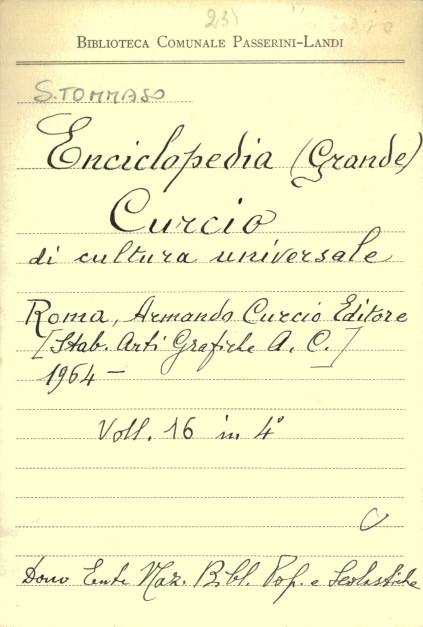 23)
BIBLIOTECA COMUNALE PASSERINI-LANDI
S. TOMMASO
Enciclopedia (Grande)
Curcio
di cultura universale
Roma, Armando Curcio Editore
[Stab. Arti Grafiche A. C.]
1964 –
Voll. 16 in 4°
Dono Ente Naz. Bibl. Pop. e Scolastiche